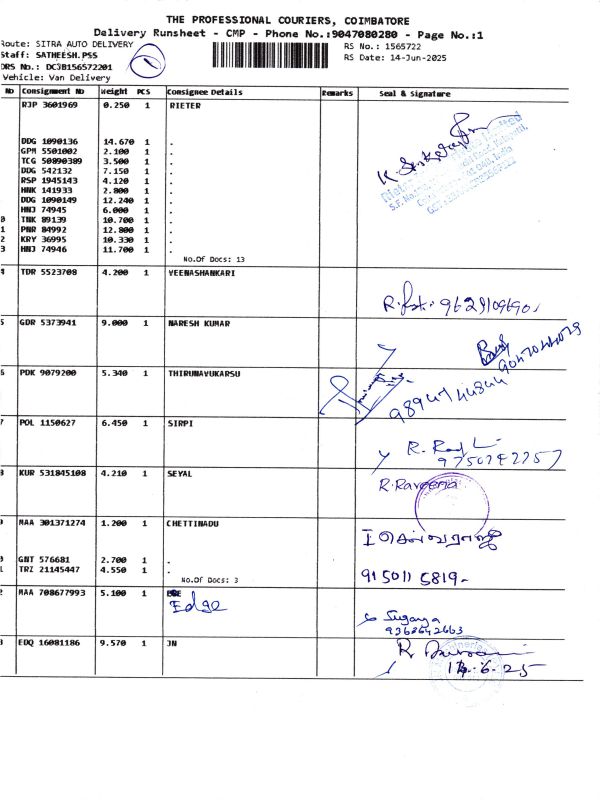 THE PROFESSIONAL COURIERS, COIMBATORE
Delivery Runsheet - CMP - Phone No.:9047080280 - Page No.:1
Route: SITRA AUTO DELIVERY
Staff: SATHEESH.PSS
DRS No.: DC3B156572201
Vehicle: Van Delivery
RS No.: 1565722
RS Date: 14-Jun-2025
No Consignment No Weight PCS Consignee Details Remarks Seal & Signature
RJP 3601969 0.250 1 RIETER
DDG 1090136 14.670 1 .
GPM 5501002 2.100 1 .
TCG 50890389 3.500 1 .
DDG 542132 7.150 1 .
RSP 1945143 4.120 1 .
HNK 141933 2.800 1 .
DDG 1090149 12.240 1 .
HNJ 74945 6.000 1 .
0 TNK 89139 10.700 1 .
1 PNR 84992 12.800 1 .
2 KRY 36995 10.330 1 .
3 HNJ 74946 11.700 1 .
No.Of Docs: 13
4 TDR 5523708 4.200 1 VEENASHANKARI
5 GDR 5373941 9.000 1 NARESH KUMAR
9047044029
6 PDK 9079200 5.340 1 THIRUNAVUKARSU
7 POL 1150627 6.450 1 SIRPI
9750742257
8 KUR 531845108 4.210 1 SEYAL
R.Raveena
9 MAA 301371274 1.200 1 CHETTINADU
0 GNT 576681 2.700 1 .
1 TRZ 21145447 4.550 1 .
No.Of Docs: 3
915011 5819
2 MAA 708677993 5.100 1
Edge
Suganya
3 EDQ 16081186 9.570 1 JN
14.6.25